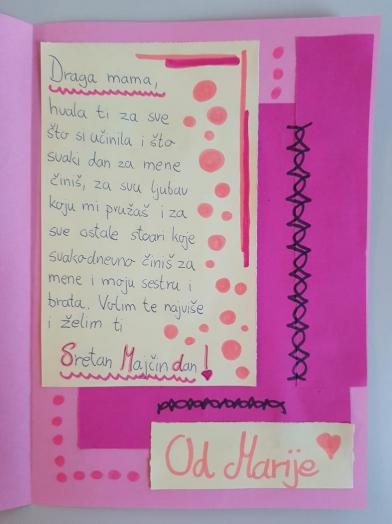 Draga mama,
hvala ti za sve
što si učinila i što
svaki dan za mene
činiš, za svu ljubav
koju mi pružaš i za
sve ostale stvari koje
svakodnevno činiš za
mene i moju sestru i
brata. Volim te najviše
i želim ti
Sretan Majčin dan!
Od Marije